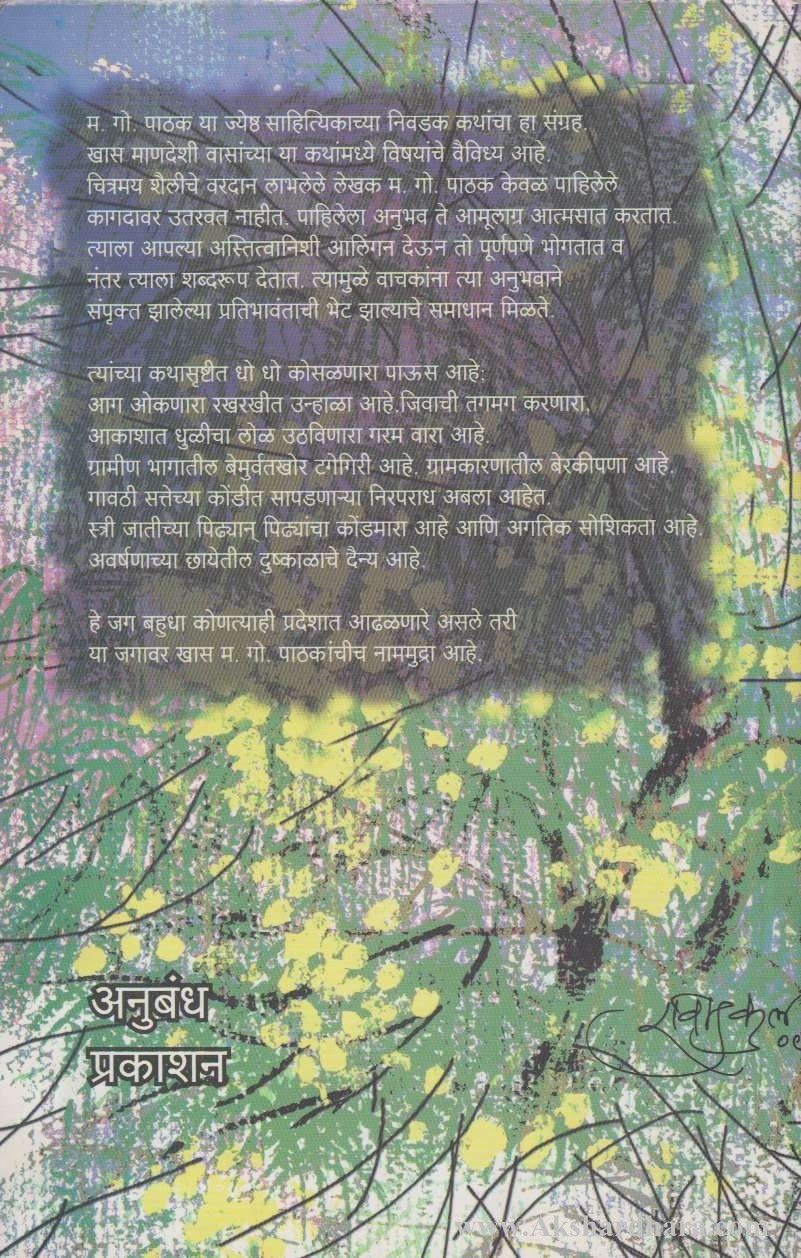 म. गो. पाठक या ज्येष्ठ साहित्यिकाच्या निवडक कथांचा हा संग्रह.
खास माणदेशी वासांच्या या कथांमध्ये विषयांचे वैविध्य आहे.
चित्रमय शैलीचे वरदान लाभलेले लेखक म. गो. पाठक केवळ पाहिलेले
कागदावर उतरवत नाहीत. पाहिलेला अनुभव ते आमूलाग्र आत्मसात करतात.
त्याला आपल्या अस्तित्वानिशी आलिंगन देऊन तो पूर्णपणे भोगतात व
नंतर त्याला शब्दरूप देतात. त्यामुळे वाचकांना त्या अनुभवाने
संपृक्त झालेल्या प्रतिभावंताची भेट झाल्याचे समाधान मिळते.
त्यांच्या कथासृष्टीत धो धो कोसळणारा पाऊस आहे;
आग ओकणारा रखरखीत उन्हाळा आहे.जिवाची तगमग करणारा,
आकाशात धुळीचा लोळ उठविणारा गरम वारा आहे.
ग्रामीण भागातील बेमुर्वतखोर टगेगिरी आहे. ग्रामकारणातील बेरकीपणा आहे.
गावठी सत्तेच्या कोंडीत सापडणाऱ्या निरपराध अबला आहेत.
स्त्री जातीच्या पिढ्यान् पिढ्यांचा कोंडमारा आहे आणि अगतिक सोशिकता आहे.
अवर्षणाच्या छायेतील दुष्काळाचे दैन्य आहे.
हे जग बहुधा कोणत्याही प्रदेशात आढळणारे असले तरी
या जगावर खास म. गो. पाठकांचीच नाममुद्रा आहे.
अनुबंध
प्रकाशन
www.Akshardhara.com